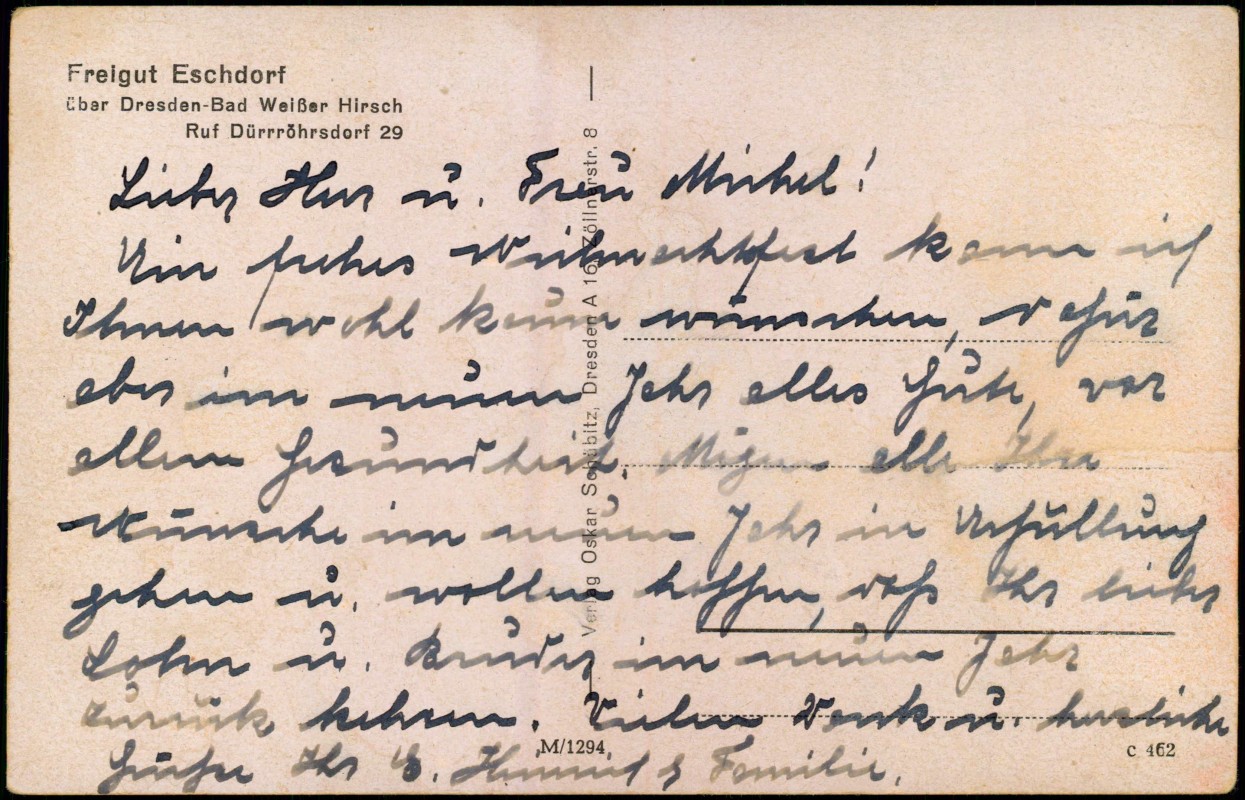 Freigut Eschdorf
über Dresden-Bad Weißer Hirsch
Ruf Dürrröhrsdorf 29
Lieber Herr u. Frau Michel!
Ein frohes Weihnachtsfest kann ich
Ihnen wohl kaum wünschen, dafür
aber im neuen Jahr alles Gute, vor
allem Gesundheit. Mögen alle Ihre
Wünsche im neuen Jahr in Erfüllung
gehen u. wollen hoffen, daß Ihr lieber
Sohn u. Bruder im neuen Jahr
zurück kehren. Vielen Dank u. herzliche
Grüße Ihr E. Familie.
Verlag Oskar Schübitz, Dresden A 16, Zöllnerstr. 8
M/1294
C 462